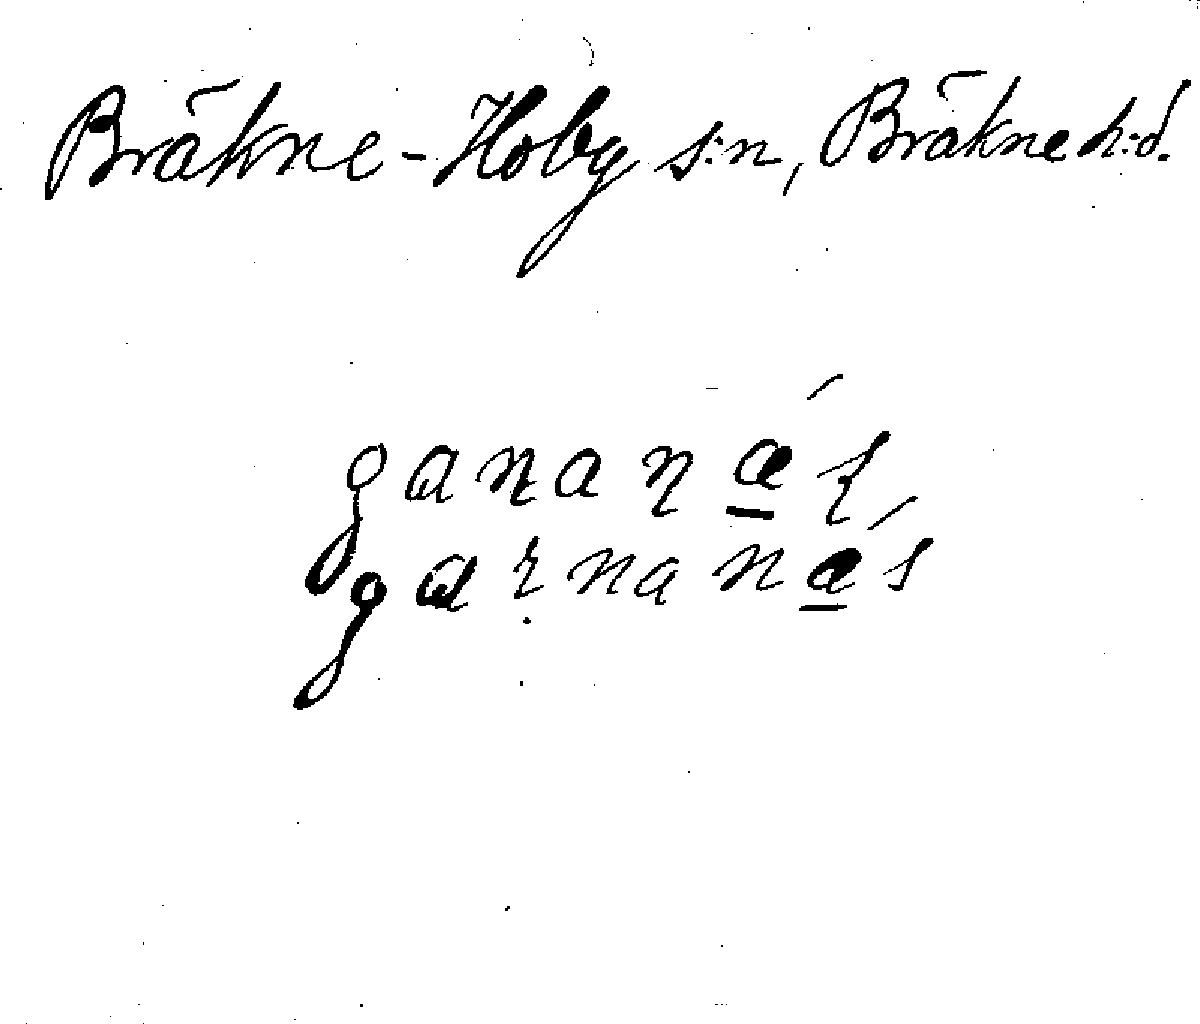 Bräkne-Hoby s:n, Bräkne h:d.
gananǽ̲s
garnanǽ̲s